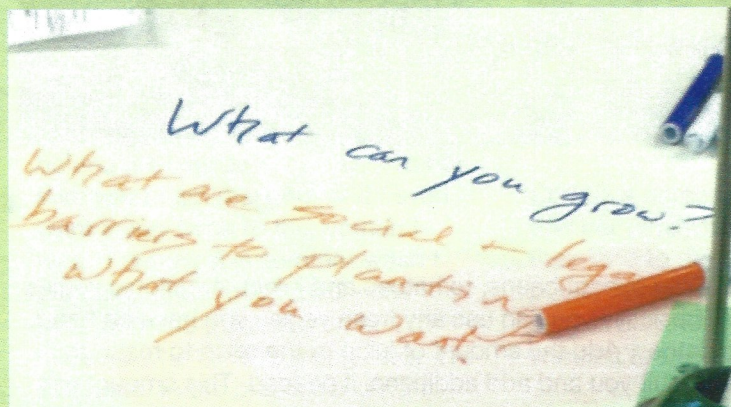 What can you grow?
What are social + lega
barriers to planting
what you want?